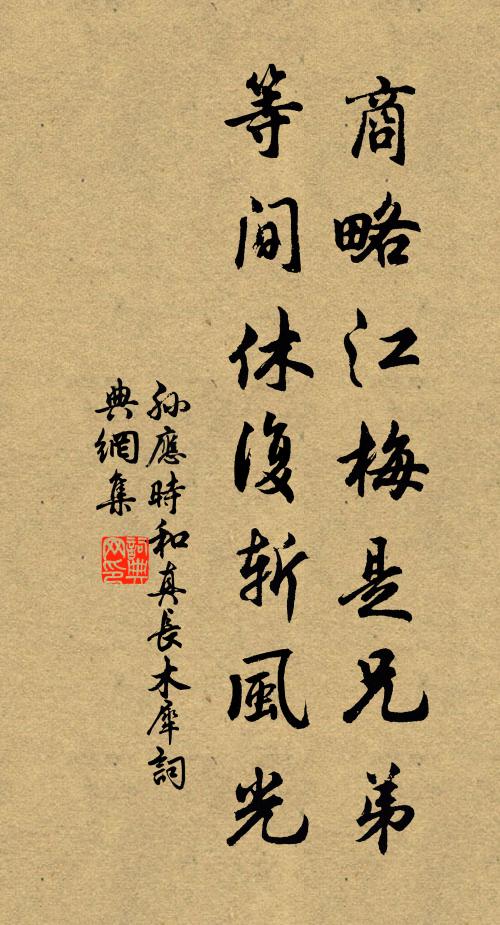 商略江梅是兄弟
等間休復斬風光
孫應時和真長木犀詞
典網集
詞典
网印